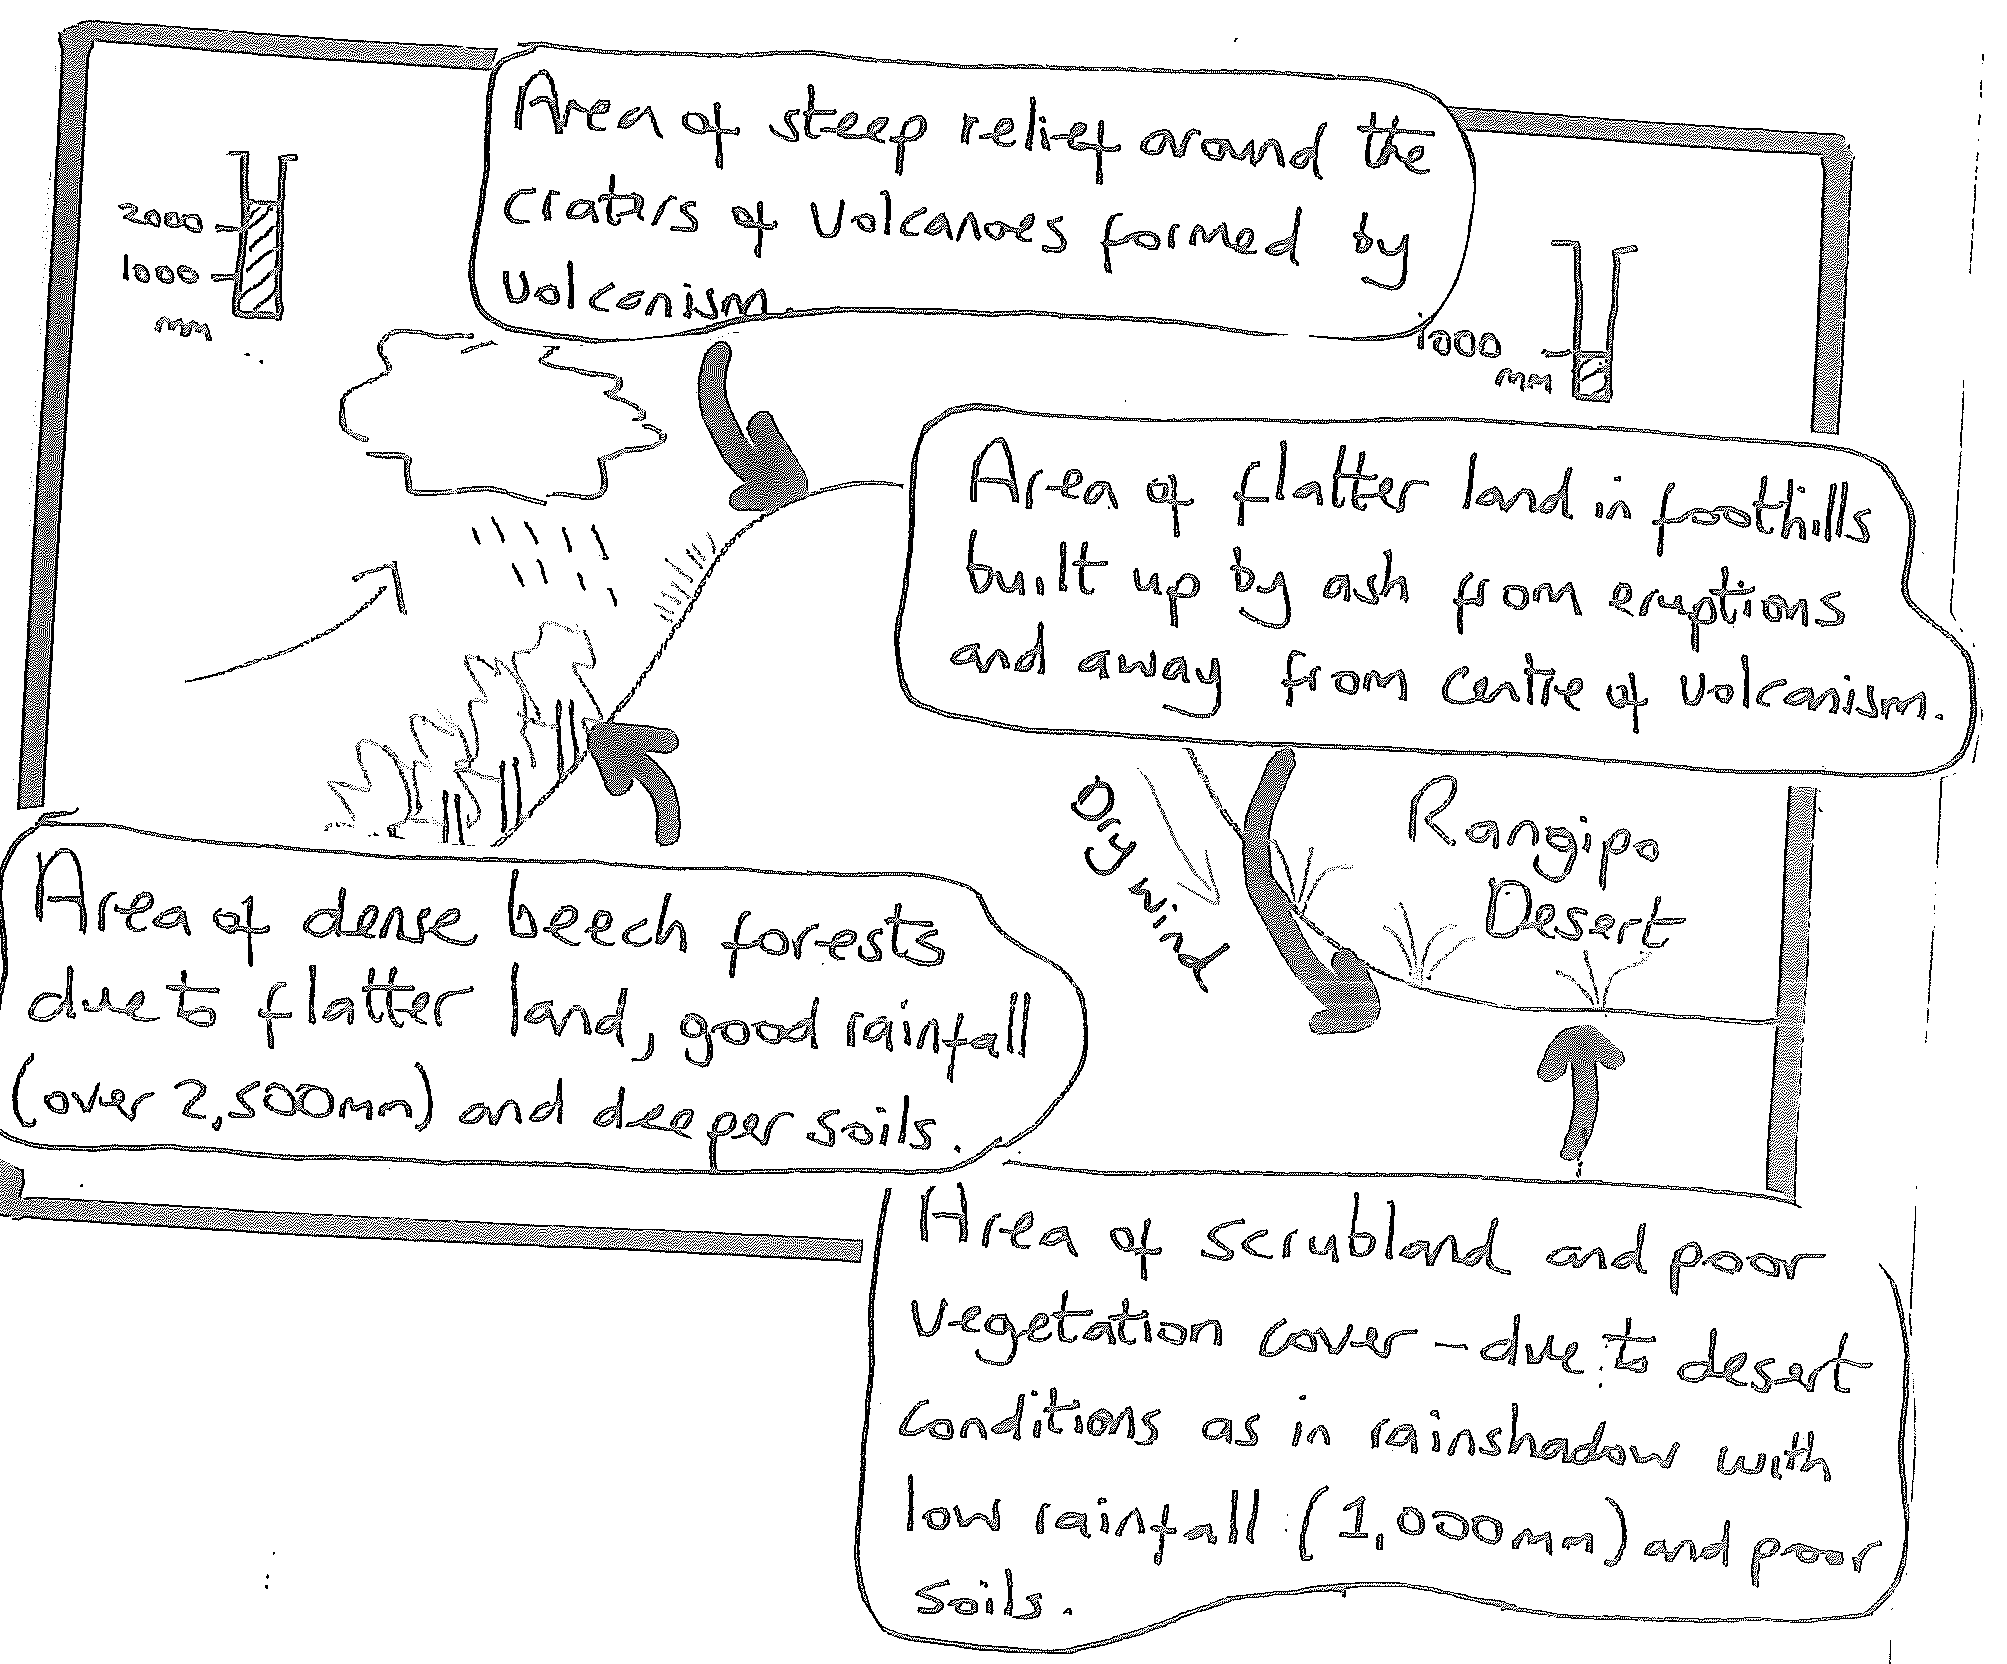 Area of steep relief around the
craters of volcanoes formed by
volcanism.
2000
1000
mm
1000
mm
Area of flatter land in foothills
built up by ash from eruptions
and away from centre of volcanism.
Dry wind
Rangipo
Desert
Area of dense beech forests
due to flatter land, good rainfall
(over 2,500mm) and deeper soils.
Area of scrubland and poor
vegetation cover - due to desert
conditions as in rainshadow with
low rainfall (1,000mm) and poor
soils.